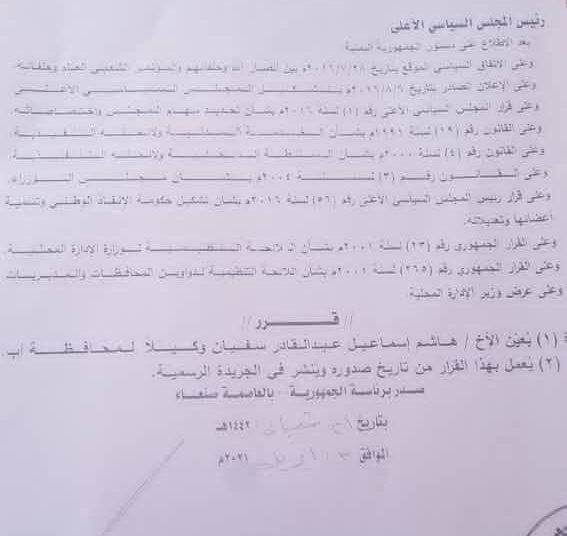 رئيس المجلس السياسي الأعلى
بعد الإطلاع على دستور الجمهورية اليمنية
وعلى الاتفاق السياسي الموقع بتاريخ ٢٠١٦/٧/٢٨م بين أنصار الله وحلفائهم والمؤتمر الشعبي العام وحلفائه.
وعلى الإعلان الصادر بتاريخ ٢٠١٦/٨/٦م بتشكيل المجلس السياسي الأعلى
وعلى قرار المجلس السياسي الأعلى رقم (١) لسنة ٢٠١٦م بشأن تحديد مهام المجلس واختصاصاته.
وعلى القانون رقم (١٩) لسنة ١٩٩١م بشأن الخدمة المدنية ولائحته التنفيذية.
وعلى القانون رقم (٤) لسنة ٢٠٠٠م بشأن السلطة المحلية ولائحته التنفيذية.
وعلى القانون رقم (٣) لسنة ٢٠٠٤م بشأن مجلس الوزراء.
وعلى قرار رئيس المجلس السياسي الأعلى رقم (٥٦) لسنة ٢٠١٦م بشأن تشكيل حكومة الإنقاذ الوطني وتسمية
أعضائها وتعديلاته.
وعلى القرار الجمهوري رقم (٢٣) لسنة ٢٠٠١م بشأن اللائحة التنظيمية لوزارة الإدارة المحلية.
وعلى القرار الجمهوري رقم (٢٦٥) لسنة ٢٠٠١م بشأن اللائحة التنظيمية لدواوين المحافظات والمديريات
وعلى عرض وزير الإدارة المحلية.
// قـــــرر //
ة (١) يُعيّن الأخ / هاشم إسماعيل عبدالقادر سفيان وكيلاً لمحافظة اب.
(٢) يُعمل بهذا القرار من تاريخ صدوره وينشر في الجريدة الرسمية.
صدر برئاسة الجمهورية - بالعاصمة صنعاء
بتاريخ شعبان ١٤٤٢هـ
الموافق ابريل ٢٠٢١م